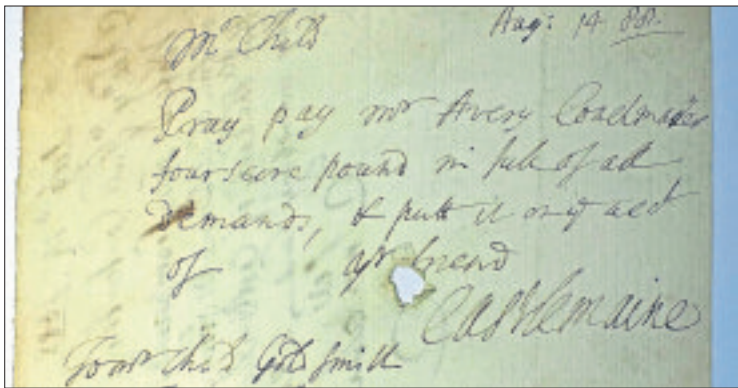 Mr Child Aug: 14 88.
Pray pay mr Avery Coachmaker
fourscore pound in full of all
Demands, & putt it on ye acct
of yr friend
Castlemaine
Child Goldsmith